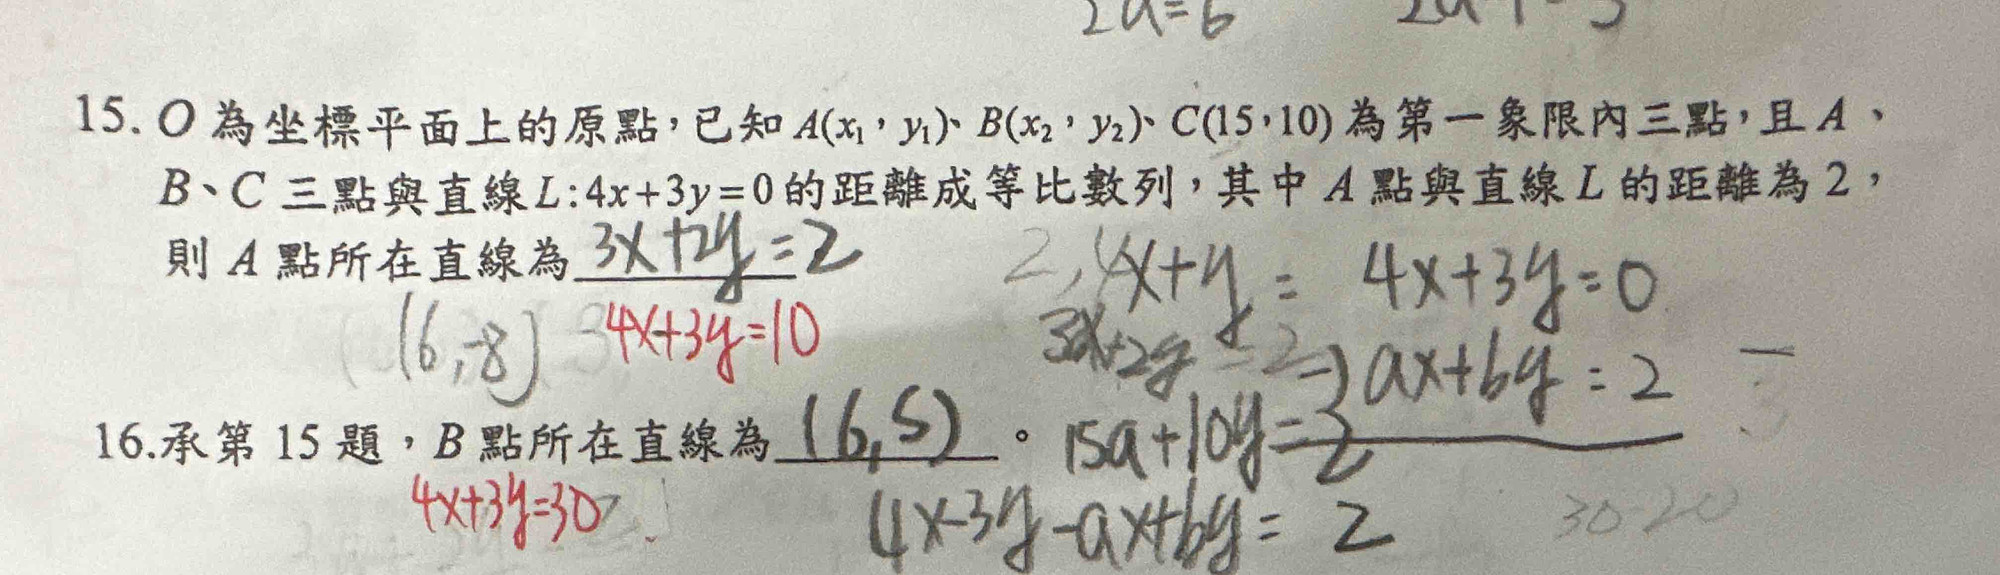 2a=6
15. O 為坐標平面上的原點，已知 A(x₁，y₁)、B(x₂，y₂)、C(15，10) 為第一象限內三點，且 A、
B、C 三點與直線 L：4x+3y=0 的距離成等比數列，其中 A 點與直線 L 的距離為 2，
則 A 點所在直線為 3x+2y=2
4x+3y=0
(6,-8)
4x+3y=10
3x+2y
ax+by=2
16.承第 15 題，B 點所在直線為 (6,5) 。
15a+10y=2
4x+3y=30
4x-3y-ax+by=2
30-20